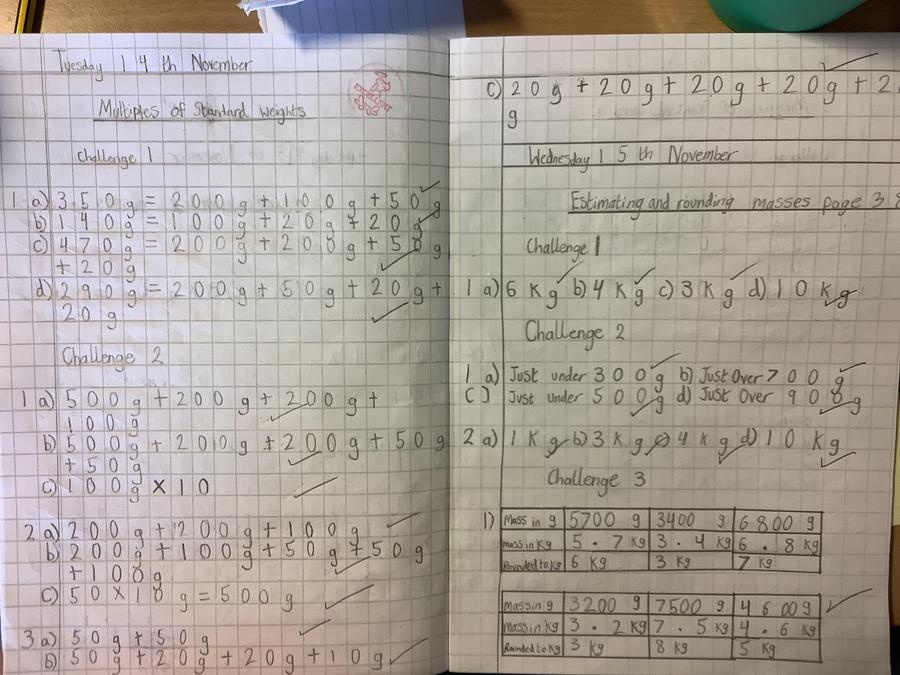 Tuesday 14th November
Multiples of Standard weights
Challenge 1
1 a) 350g = 200g + 100g + 50g
b) 140g = 100g + 20g + 20g
c) 470g = 200g + 200g + 50g
+ 20g
d) 290g = 200g + 50g + 20g +
20g
Challenge 2
1 a) 500g + 200g + 200g +
100g
b) 500g + 200g + 200g + 50g
+ 50g
c) 100g × 10
2 a) 200g + 200g + 100g
b) 200g + 100g + 50g + 50g
+ 100g
c) 50 × 10g = 500g
3 a) 50g + 50g
b) 50g + 20g + 20g + 10g
c) 20g + 20g + 20g + 20g + 2
g
Wednesday 15th November
Estimating and rounding masses page 3
Challenge 1
1 a) 6 Kg b) 4 Kg c) 3 Kg d) 10 Kg
Challenge 2
1 a) Just under 300g b) Just Over 700g
C) Just under 500g d) Just Over 900g
2 a) 1 Kg b) 3 Kg c) 4 Kg d) 10 Kg
Challenge 3
1) Mass in g 5700 g 3400 g 6800 g
mass in Kg 5.7 Kg 3.4 Kg 6.8 Kg
Rounded to Kg 6 Kg 3 Kg 7 Kg
Mass in g 3200 g 7500 g 4600g
mass in Kg 3.2 Kg 7.5 Kg 4.6 Kg
Rounded to Kg 3 Kg 8 Kg 5 Kg